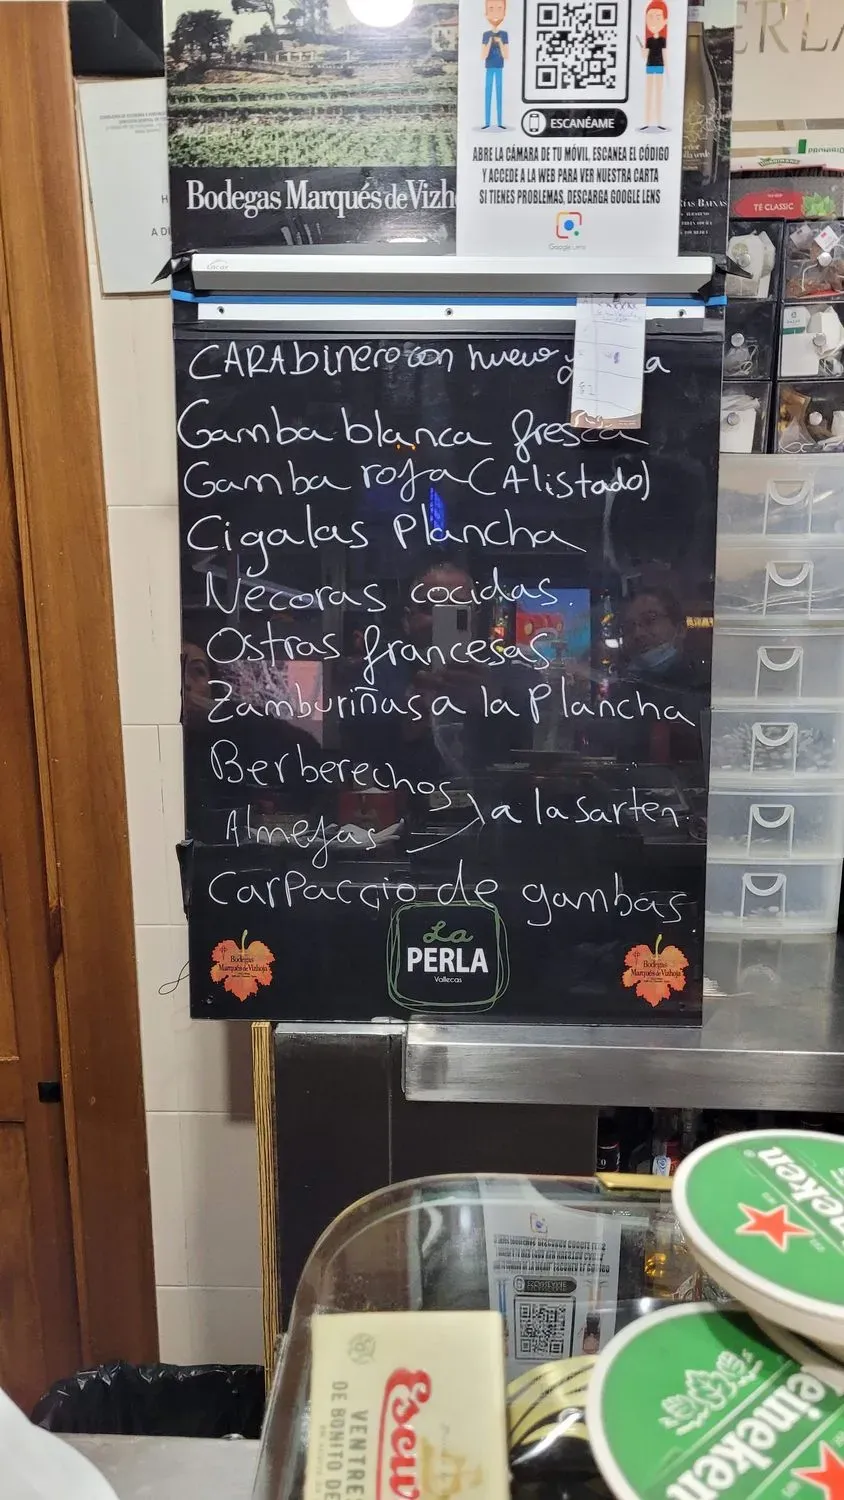 ERLA
ESCANÉAME
ABRE LA CÁMARA DE TU MÓVIL, ESCANEA EL CÓDIGO
Y ACCEDE A LA WEB PARA VER NUESTRA CARTA
SI TIENES PROBLEMAS, DESCARGA GOOGLE LENS
Google Lens
Bodegas Marqués de Vizh
RÍAS BAIXAS
TÉ CLASSIC
CARAbinero con huevo y a
Gamba blanca fresca
Gamba roja (Alistado)
Cigalas Plancha
Necoras cocidas.
Ostras francesas
Zamburiñas a la Plancha
Berberechos
a la sarten.
Almejas
Carpaccio de gambas
La
PERLA
Vallecas
Bodegas
Marqués de Vizhoja
Bodegas
Marqués de Vizhoja
Heineken
Heineken
Escu
VENTRE
DE BONITO DE